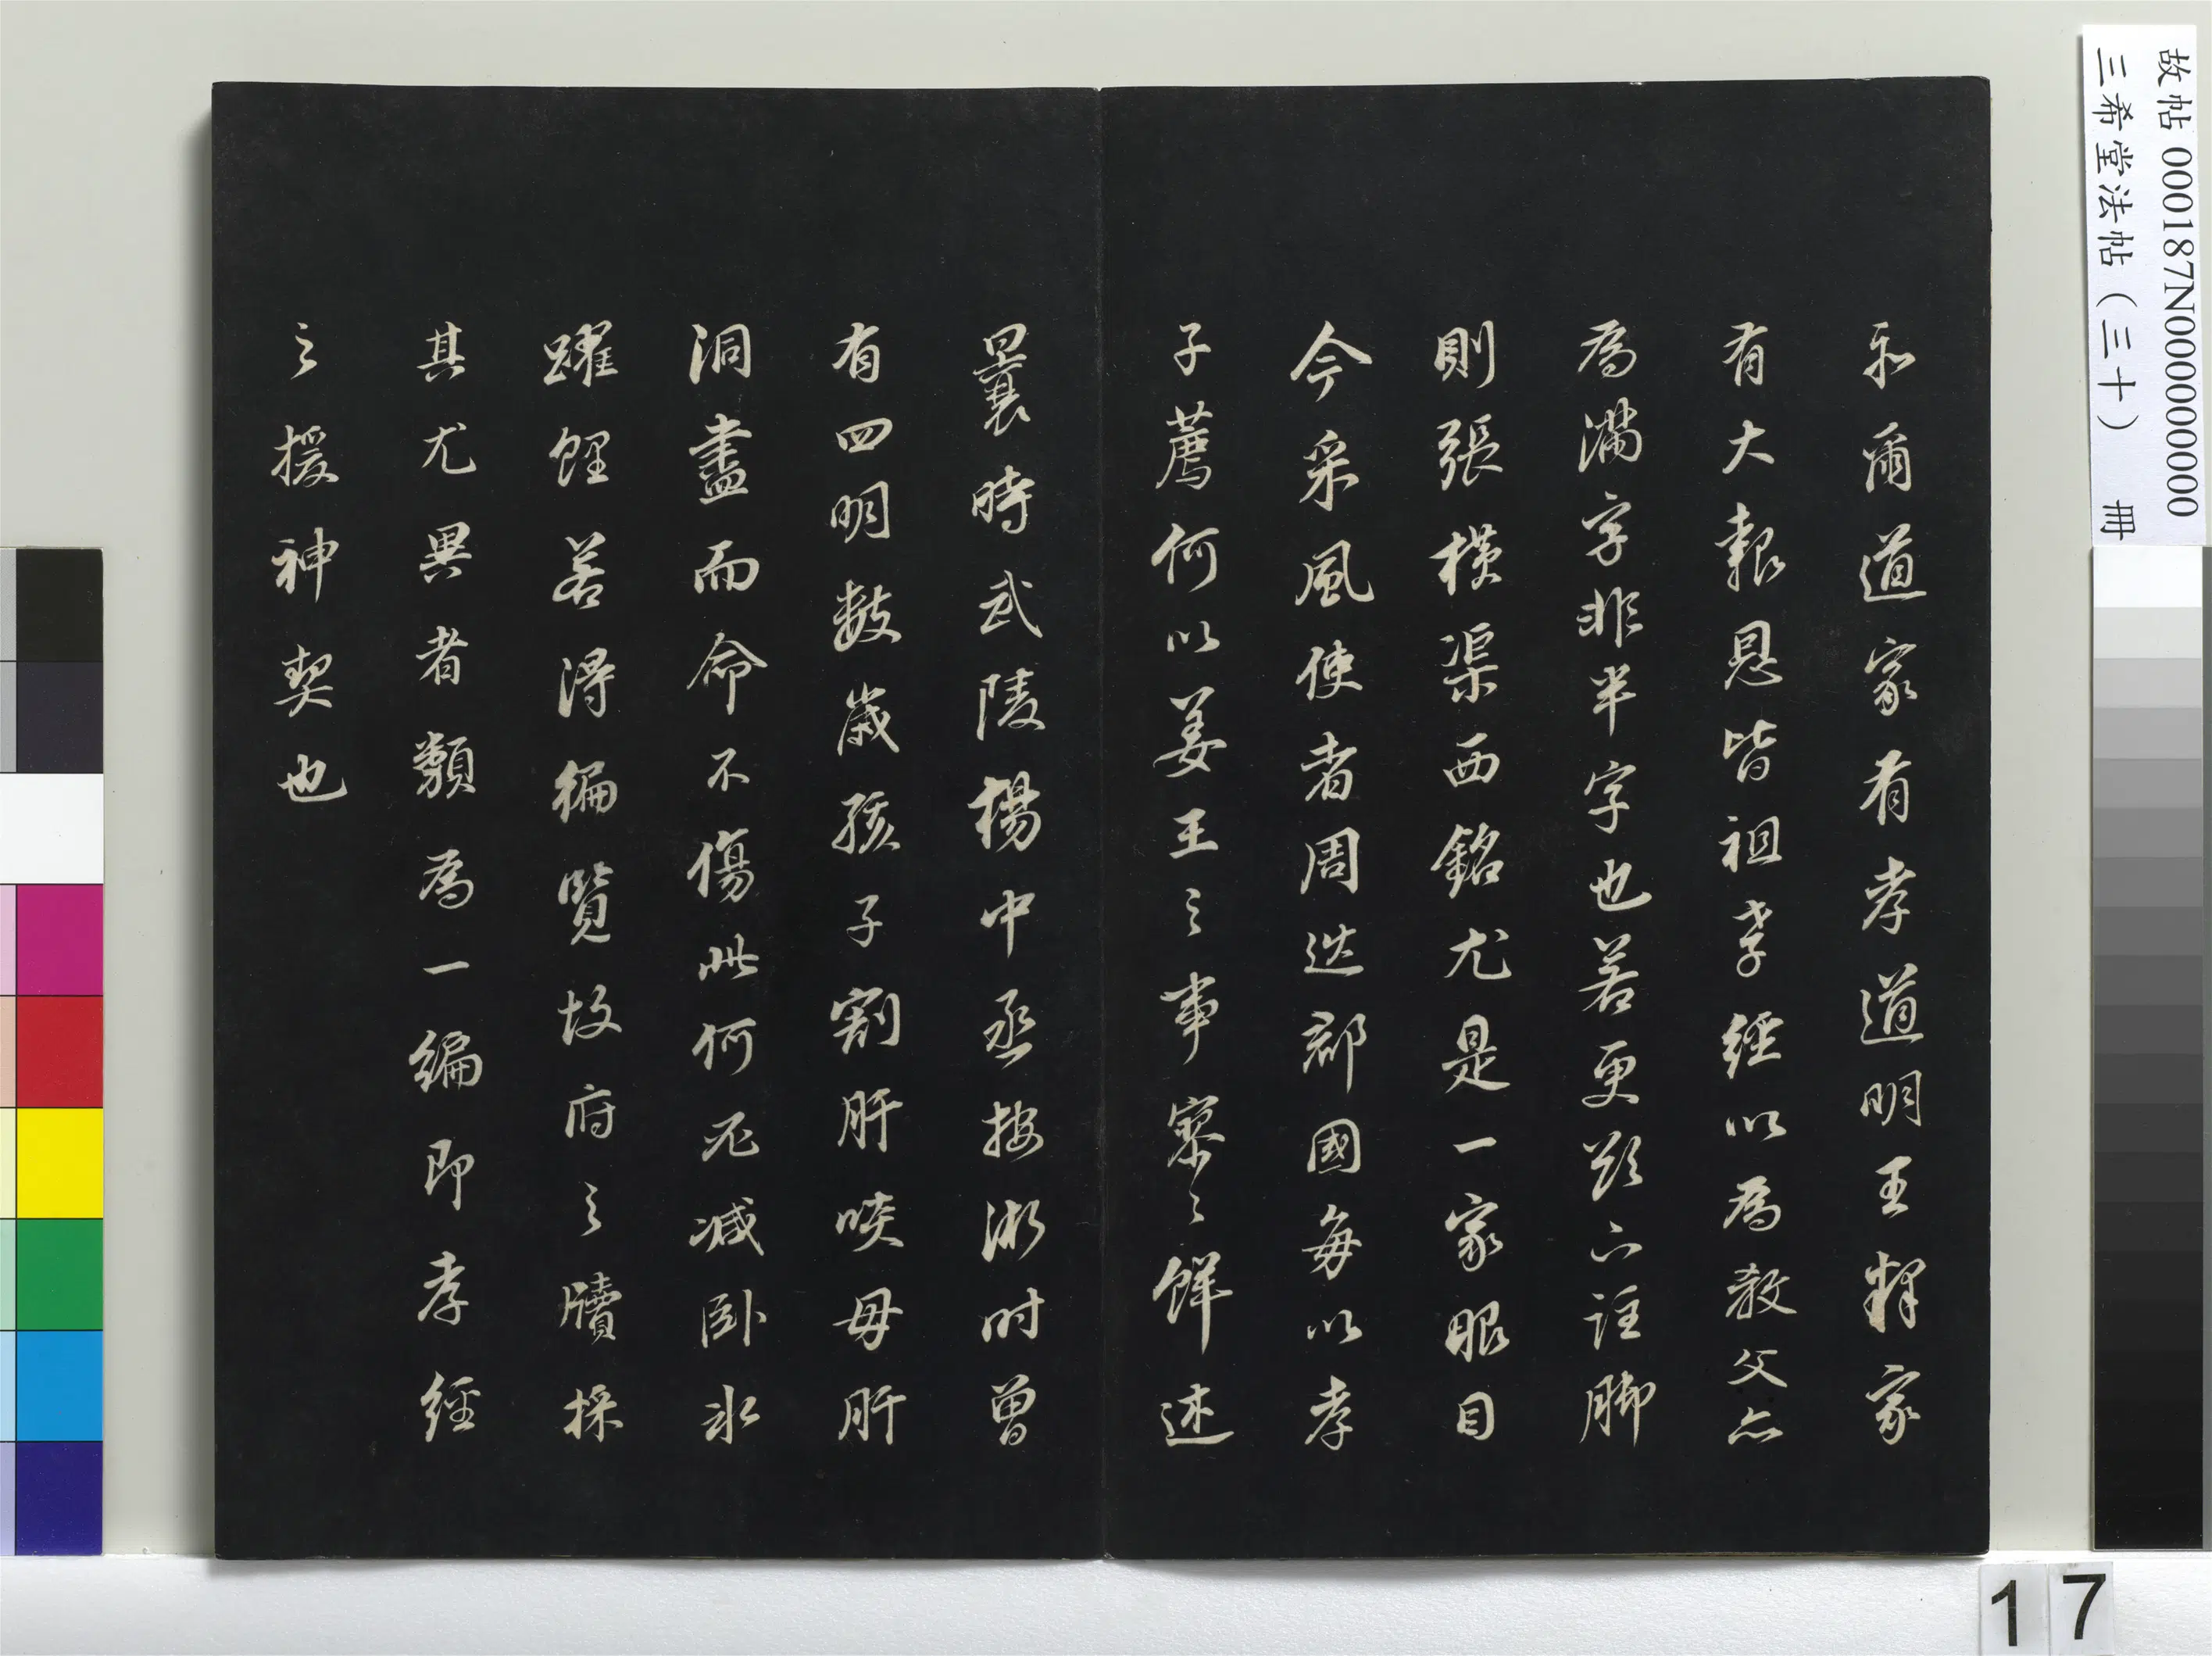 故帖 000187N000000000
三希堂法帖（三十） 冊
和爾道家有孝道明王釋家
有大報恩皆祖孝經以為教父亦
為滿字非半字也若更題六註脚
則張橫渠西銘尤是一家眼目
今采風使者周巡郡國每以孝
子薦何以姜王之事寥寥鮮述
曩時武陵楊中丞按浙時曾
有四明數歲孩子割肝啖母肝
洞盡而命不傷此何不減臥冰
躍鯉若得徧覽故府之牘採
其尤異者類為一編即孝經
之援神契也
17